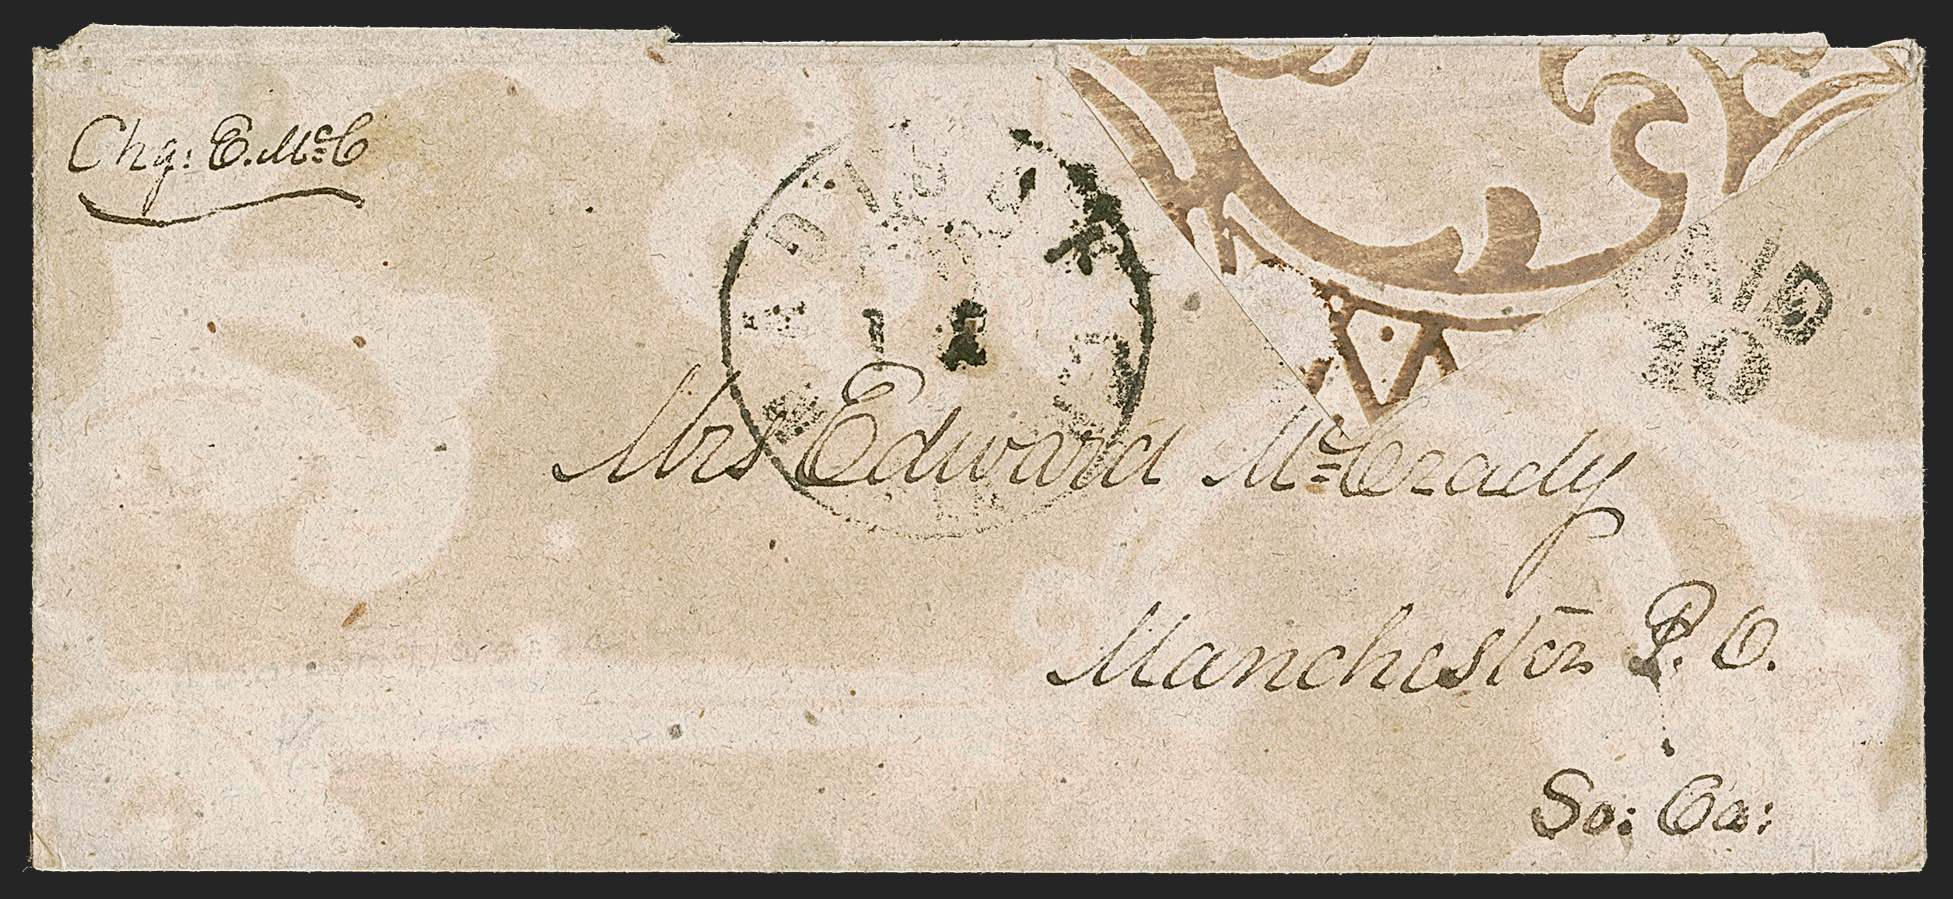 Chg: E. McC
PAID
10
Mrs Edward McCrady
Manchester P. O.
So: Ca: